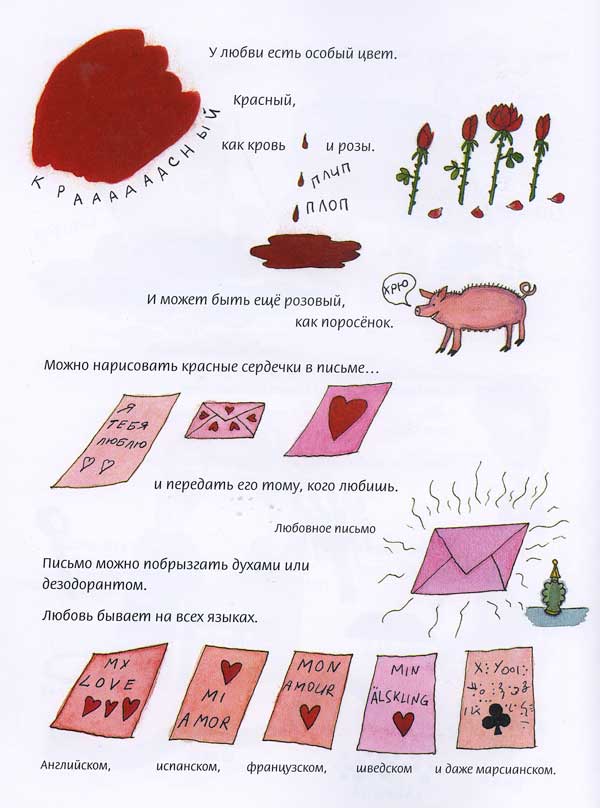 У любви есть особый цвет.
Красный,
КРАААААСНЫЙ
как кровь и розы.
ПЛИП
ПЛОП
ХРЮ
И может быть ещё розовый,
как поросёнок.
Можно нарисовать красные сердечки в письме...
Я
ТЕБЯ
ЛЮБЛЮ
и передать его тому, кого любишь.
Любовное письмо
Письмо можно побрызгать духами или
дезодорантом.
Любовь бывает на всех языках.
MY
LOVE
MI
AMOR
MON
AMOUR
MIN
ÄLSKLING
Английском, испанском, французском, шведском и даже марсианском.